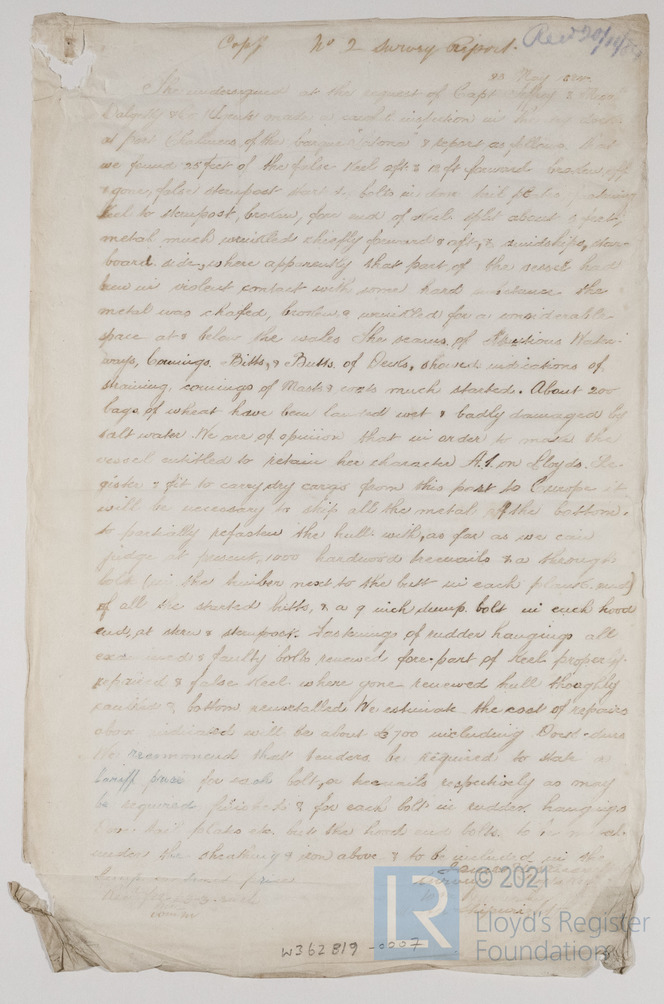 Copy No 2 Survey Report. Recd 20/10/
23 May
The undersigned at the request of Capt &
Dalgetty & Co made a careful inspection in the dry dock
at Port Chalmers of the barque & report as follows, that
we found 25 feet of the false Keel aft & 12 ft forward broken off
& gone, false sternpost bolts in dove tail plate
Keel to sternpost, broken, fore end of Keel split about feet,
metal much wrinkled chiefly forward & aft, & amidships, star-
board side, where apparently that part of the vessel had
been in violent contact with some hard substance the
metal was chafed, broken & wrinkled for a considerable
space at & below the wales The seams of Water-
ways, Comings, Bitts, & Butts of Decks, showed indications of
straining, comings of Mast & coats much started. About 200
bags of wheat have been landed wet & badly damaged by
salt water. We are of opinion that in order to make the
vessel entitled to retain her character A.1. on Lloyds Re-
gister & fit to carry dry cargo from this port to Europe it
will be necessary to strip all the metal off the bottom.
to partially refasten the hull with, as far as we can
judge at present, 1000 hardwood treenails & a through
bolt (in the timber next to the butt in each plank end)
of all the started butts, & a 9 inch dump bolt in each hood
end, at stem & sternpost. Fastenings of rudder hangings all
examined & faulty bolts renewed fore-part of Keel properly
repaired & false Keel where gone renewed hull thoughly
caulked & bottom remetalled We estimate the cost of repairs
above indicated will be about £700 including Dock-dues
We recommend that tenders be required to state a
tariff price for each bolt, or treenails respectively as may
be required & for each bolt in rudder hangings
Dove tail plates etc. but the hood end bolts, to be metal
under the sheathing & iron above & to be included in the
Lump price
Shipwright
W362819-0007
© 2021
LR
Lloyd's Register
Foundation